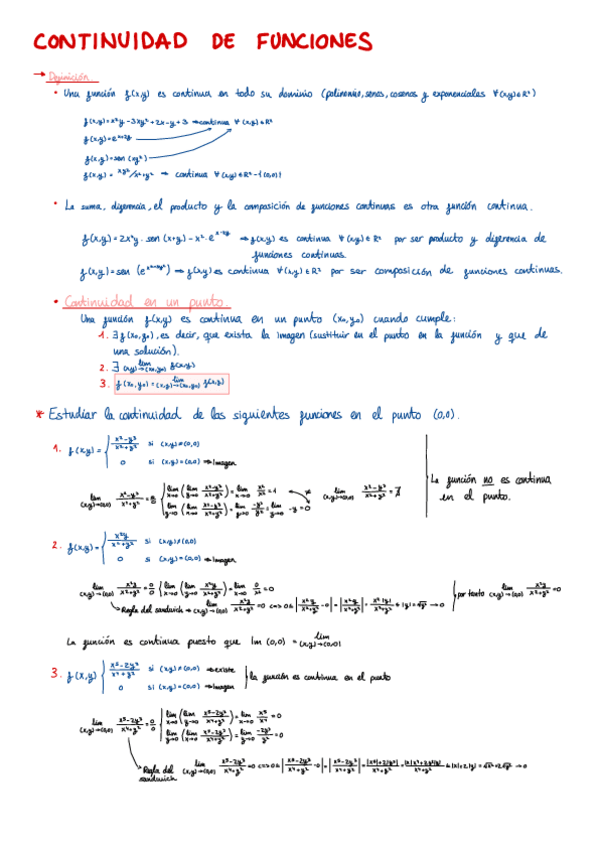 CONTINUIDAD DE FUNCIONES
→ Definición
• Una función f(x,y) es continua en todo su dominio (polinomios, senos, cosenos y exponenciales ∀(x,y)∈R²)
f(x,y)=x²y-3xy²+2x-y+3 → continua ∀(x,y)∈R²
f(x,y)=e^(x+2y)
f(x,y)=sen(xy²)
f(x,y)= xy²/x²+y² → continua ∀(x,y)∈R²-{(0,0)}
• La suma, diferencia, el producto y la composición de funciones continuas es otra función continua.
f(x,y)=2x²y·sen(x+y)-x²·e^(x-4y) → f(x,y) es continua ∀(x,y)∈R² por ser producto y diferencia de
funciones continuas.
→ f(x,y) es continua ∀(x,y)∈R² por ser composición de funciones continuas.
• Continuidad en un punto.
Una función f(x,y) es continua en un punto (x₀,y₀) cuando cumple:
1. ∃ f(x₀,y₀), es decir, que exista la imagen (sustituir en el punto en la función y que de
una solución).
2. ∃ lim (x,y)→(x₀,y₀) f(x,y)
3. f(x₀,y₀) = lim (x,y)→(x₀,y₀) f(x,y)
* Estudiar la continuidad de las siguientes funciones en el punto (0,0).
1. f(x,y)= { x²-y³/x²+y² si (x,y)≠(0,0)
0 si (x,y)=(0,0) → Imagen
lim (x,y)→(0,0) x²-y³/x²+y² = 0/0 { lim x→0 (lim y→0 x²-y³/x²+y²) = lim x→0 x²/x² = 1
lim y→0 (lim x→0 x²-y³/x²+y²) = lim y→0 -y³/y² = lim y→0 -y = 0
lim (x,y)→(0,0) x²-y³/x²+y² = ∄
La función no es continua
en el punto.
2. f(x,y)= { x²y/x²+y² si (x,y)≠(0,0)
0 si (x,y)=(0,0) → Imagen
lim (x,y)→(0,0) x²y/x²+y² = 0/0 { lim x→0 (lim y→0 x²y/x²+y²) = lim x→0 0/x² = 0
Regla del sandwich → lim (x,y)→(0,0) x²y/x²+y² = 0 <=> 0≤ |x²y/x²+y² - 0| = |x²y/x²+y²| = x²|y|/x²+y² ≤ |y| = √y² → 0
por tanto lim (x,y)→(0,0) x²y/x²+y² = 0
La función es continua puesto que Im (0,0) = lim (x,y)→(0,0)
3. f(x,y) { si (x,y)≠(0,0) → existe
0 si (x,y)=(0,0) → Imagen
la función es continua en el punto
Regla del
sandwich